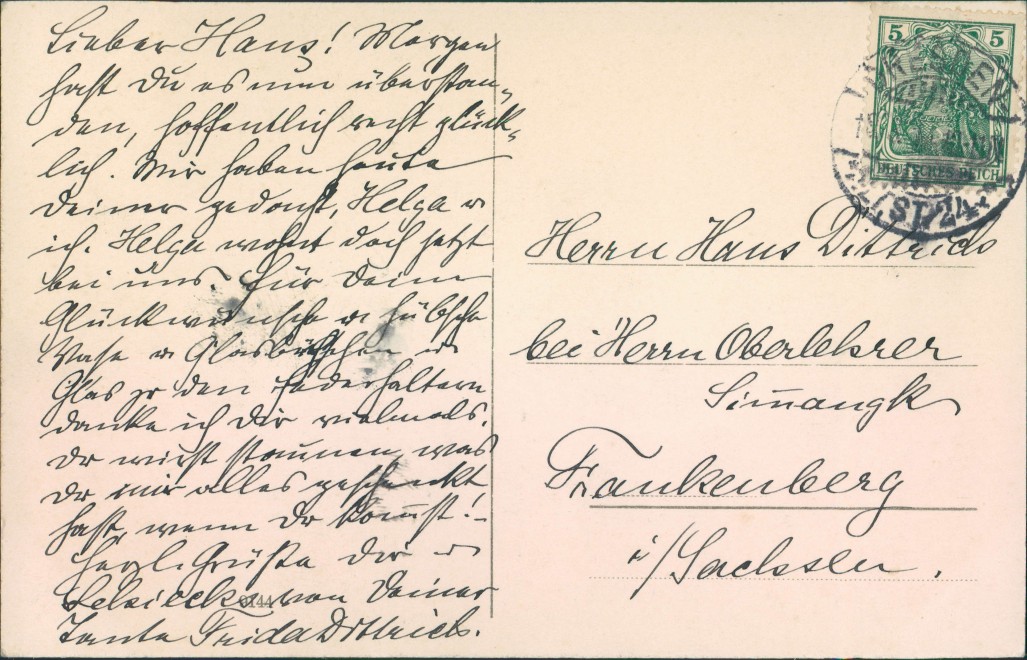 Lieber Hans! Morgen
hast Du es nun überstan-
den, hoffentlich recht glück-
lich. Wir haben heute
Deiner gedacht, Helga u
ich. Helga wohnt doch jetzt
bei uns. Für Deine
Glückwünsche u hübsche
Vase u Glasbüchschen u
Glas zu den Federhaltern
danke ich Dir vielmals.
Du wirst staunen, was
Du mir alles geschenkt
hast, wenn Du kommst!-
Herzl. Grüße Dir u
von Deiner
Tante Frida Dittrich.
9144
5 5
DEUTSCHES REICH
DRESDEN
Herrn Hans Dittrich
bei Herrn Oberlehrer
Simangk
Frankenberg
i/Sachsen.